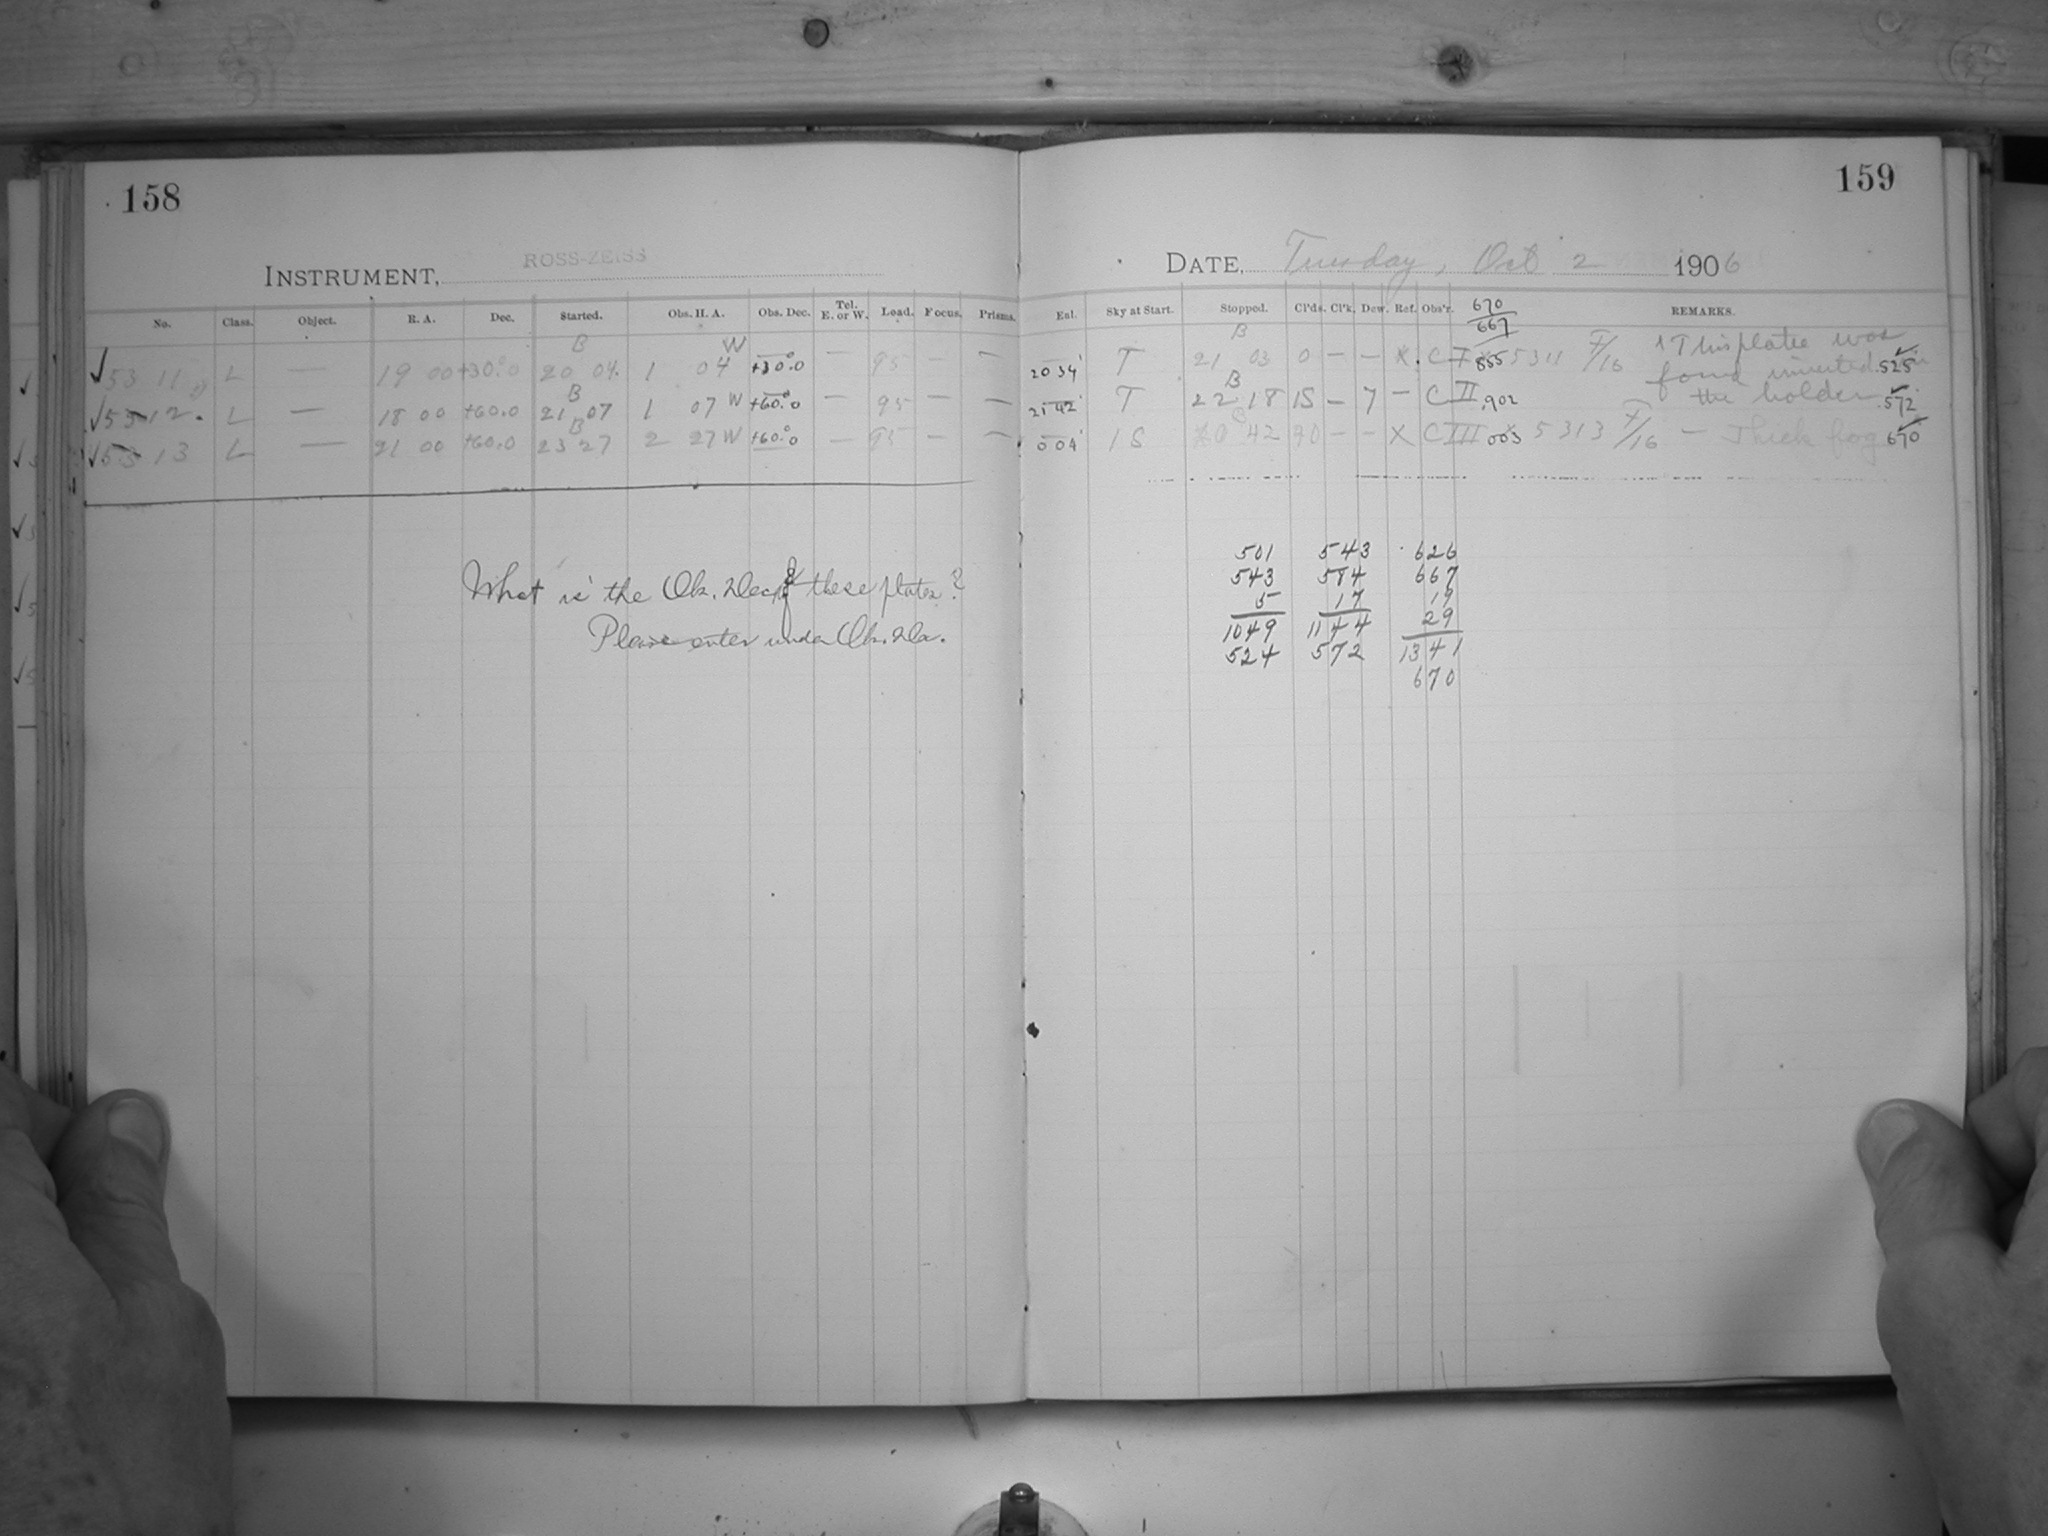 158
159
INSTRUMENT, ROSS-ZEISS
DATE, Tuesday, Oct 2 1906
No. Class. Object. R. A. Dec. Started. Obs. H. A. Obs. Dec. Tel. E. or W. Load. Focus. Prisms. Exl. Sky at Start. Stopped. Cl'ds. Cl'k. Dew. Ref. Obs'r. 670 667 REMARKS.
✓ 53 11 L — 19 00 +30.0 B 20 04. 1 04 W +30.0 — 95 — — 20 34 T B 21 03 0 — — X. C I 855 5311 F/16 This plate was
found inverted in .525 ✓
✓ 53 12. L — 18 00 +60.0 B 21 07 1 07 W +60.0 — 95 — — 21 42 T B 22 18 1S — 7 — C II .902 the holder .572 ✓
✓ 53 13 L — 21 00 +60.0 B 23 27 2 27 W +60.0 — 95 — — 0 04 1S 0 42 — — X C III .003 5313 F/16 — Thick fog 670 ✓
What is the Ob. Dec. of these plates?
Please enter under Ob. Dec.
501 543 626
543 584 667
5 17 19
1049 1144 29
524 572 1341
670